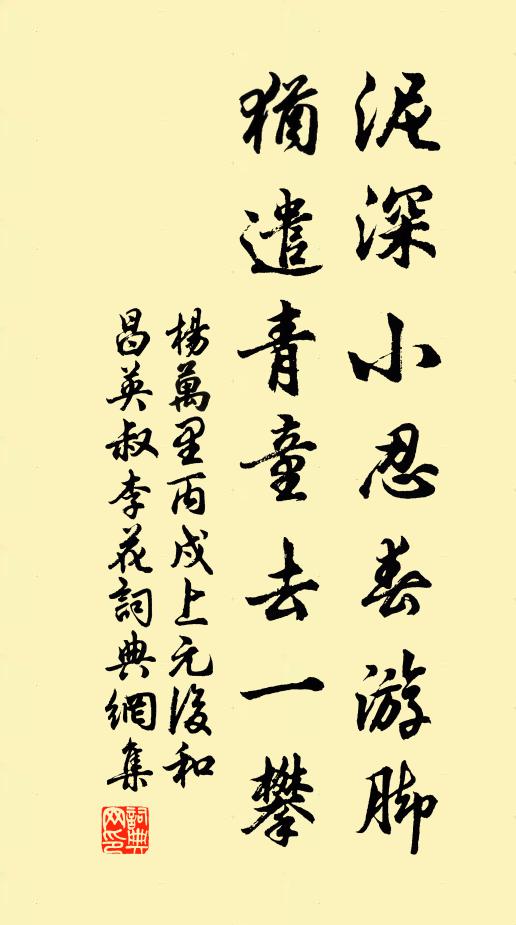 泥深小忍春游脚
猶遣青童去一攀
楊萬里丙戌上元後和
昌英叔李花詞典網集
詞典网印